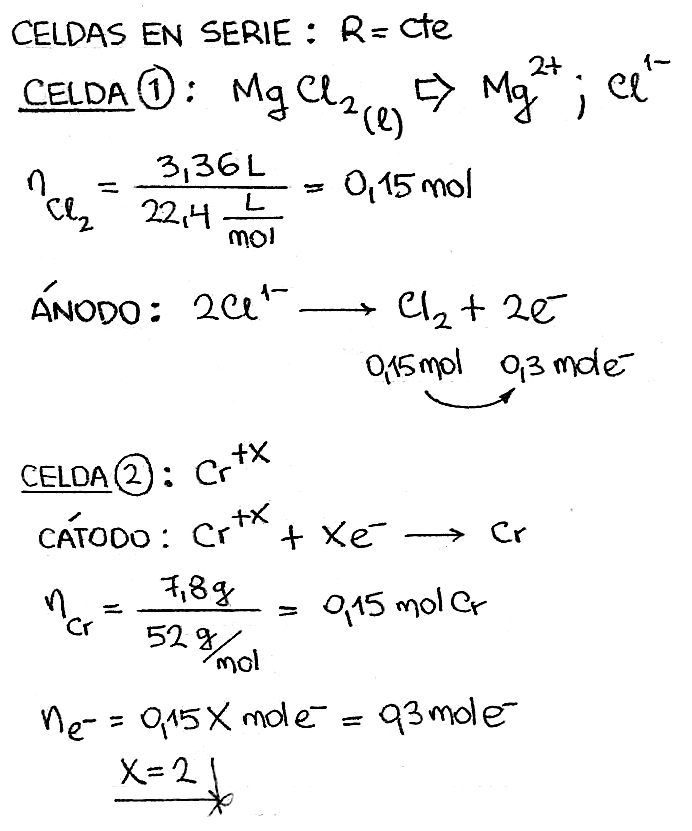 CELDAS EN SERIE : R = cte
CELDA ① : MgCl₂(l) ⇨ Mg²⁺ ; Cl¹⁻
n Cl₂ = 3,36 L / 22,4 L/mol = 0,15 mol
ÁNODO : 2Cl¹⁻ ⟶ Cl₂ + 2e⁻
0,15 mol 0,3 mol e⁻
CELDA ② : Cr⁺ˣ
CÁTODO : Cr⁺ˣ + Xe⁻ ⟶ Cr
n Cr = 7,8 g / 52 g/mol = 0,15 mol Cr
n e⁻ = 0,15 X mol e⁻ = 0,3 mol e⁻
X = 2